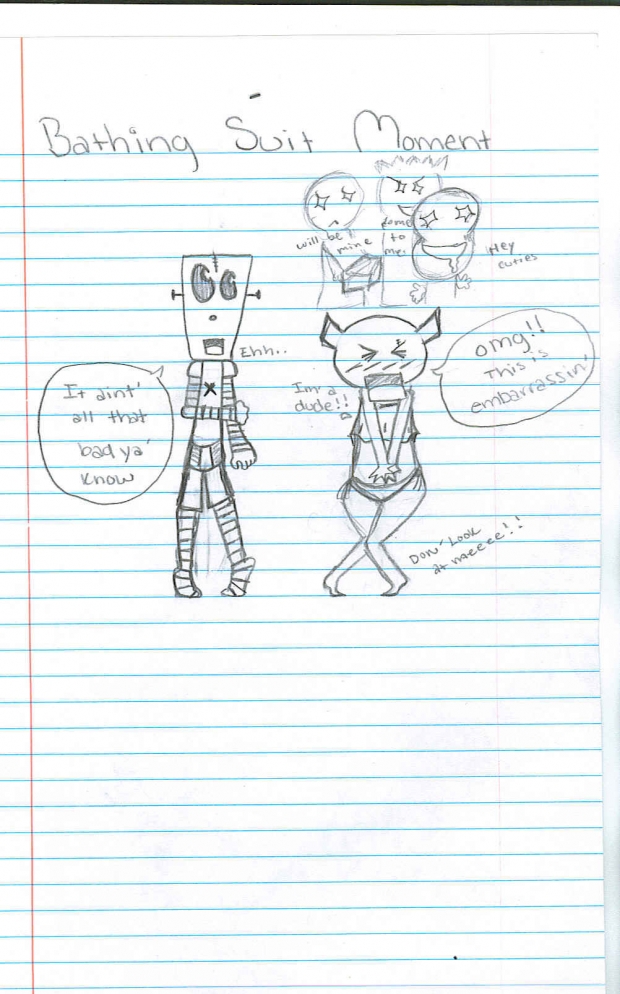 Bathing Suit Moment
will be
mine
come
to
me.
Hey
cuties
Ehh..
omg!!
This is
embarrassin'
It aint'
all that
bad ya'
know
I'm a
dude!!
Don' Look
at meeee!!